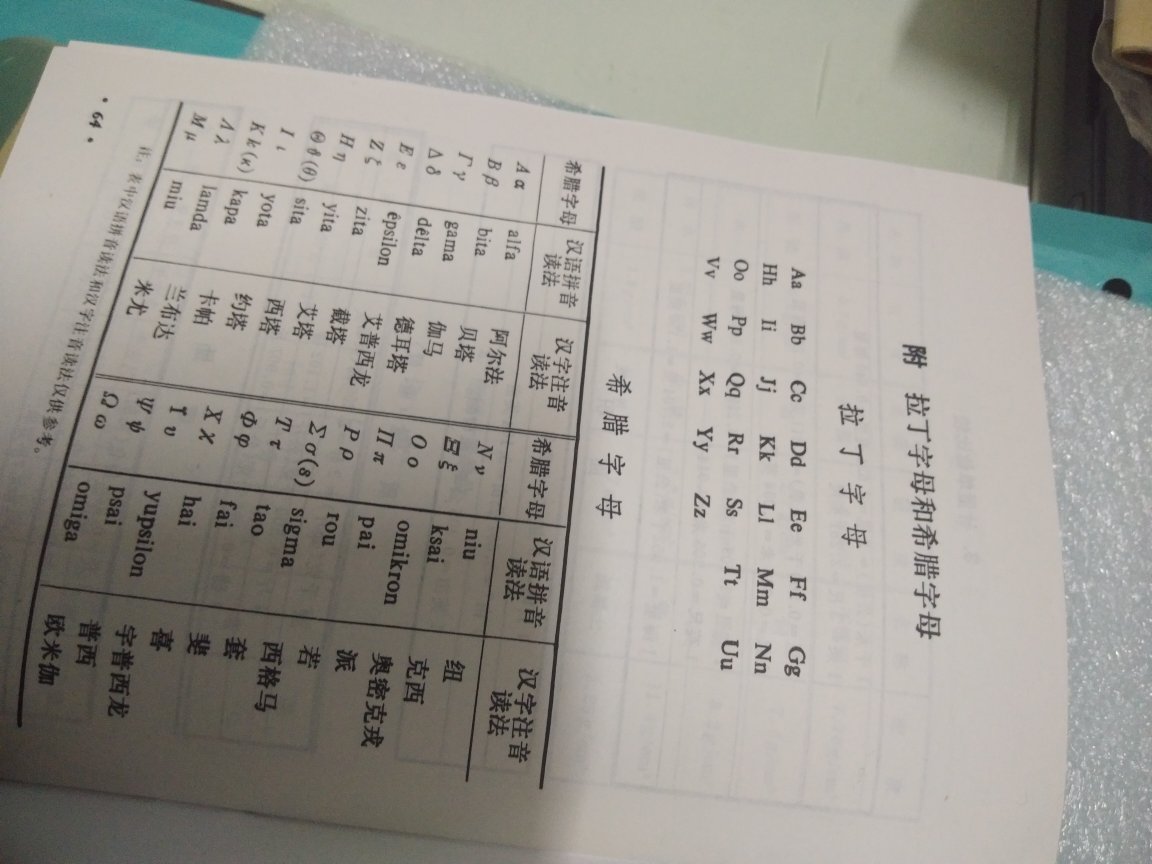 附 拉丁字母和希腊字母
拉丁字母
Aa Bb Cc Dd Ee Ff Gg
Hh Ii Jj Kk Ll Mm Nn
Oo Pp Qq Rr Ss Tt Uu
Vv Ww Xx Yy Zz
希腊字母
希腊字母 汉语拼音读法 汉字注音读法 希腊字母 汉语拼音读法 汉字注音读法
Α α alfa 阿尔法 Ν ν niu 纽
Β β bita 贝塔 Ξ ξ ksai 克西
Γ γ gama 伽马 Ο ο omikron 奥密克戎
Δ δ dêlta 德耳塔 Π π pai 派
Ε ε êpsilon 艾普西龙 Ρ ρ rou 若
Ζ ζ zita 截塔 Σ σ(s) sigma 西格马
Η η yita 艾塔 Τ τ tao 套
Θ ϑ(θ) sita 西塔 Φ φ fai 斐
Ι ι yota 约塔 Χ χ hai 喜
Κ k(κ) kapa 卡帕 ϒ υ yupsilon 宇普西龙
Λ λ lamda 兰布达 Ψ ψ psai 普西
Μ μ miu 米尤 Ω ω omiga 欧米伽
注：表中汉语拼音读法和汉字注音读法仅供参考。
• 64 •